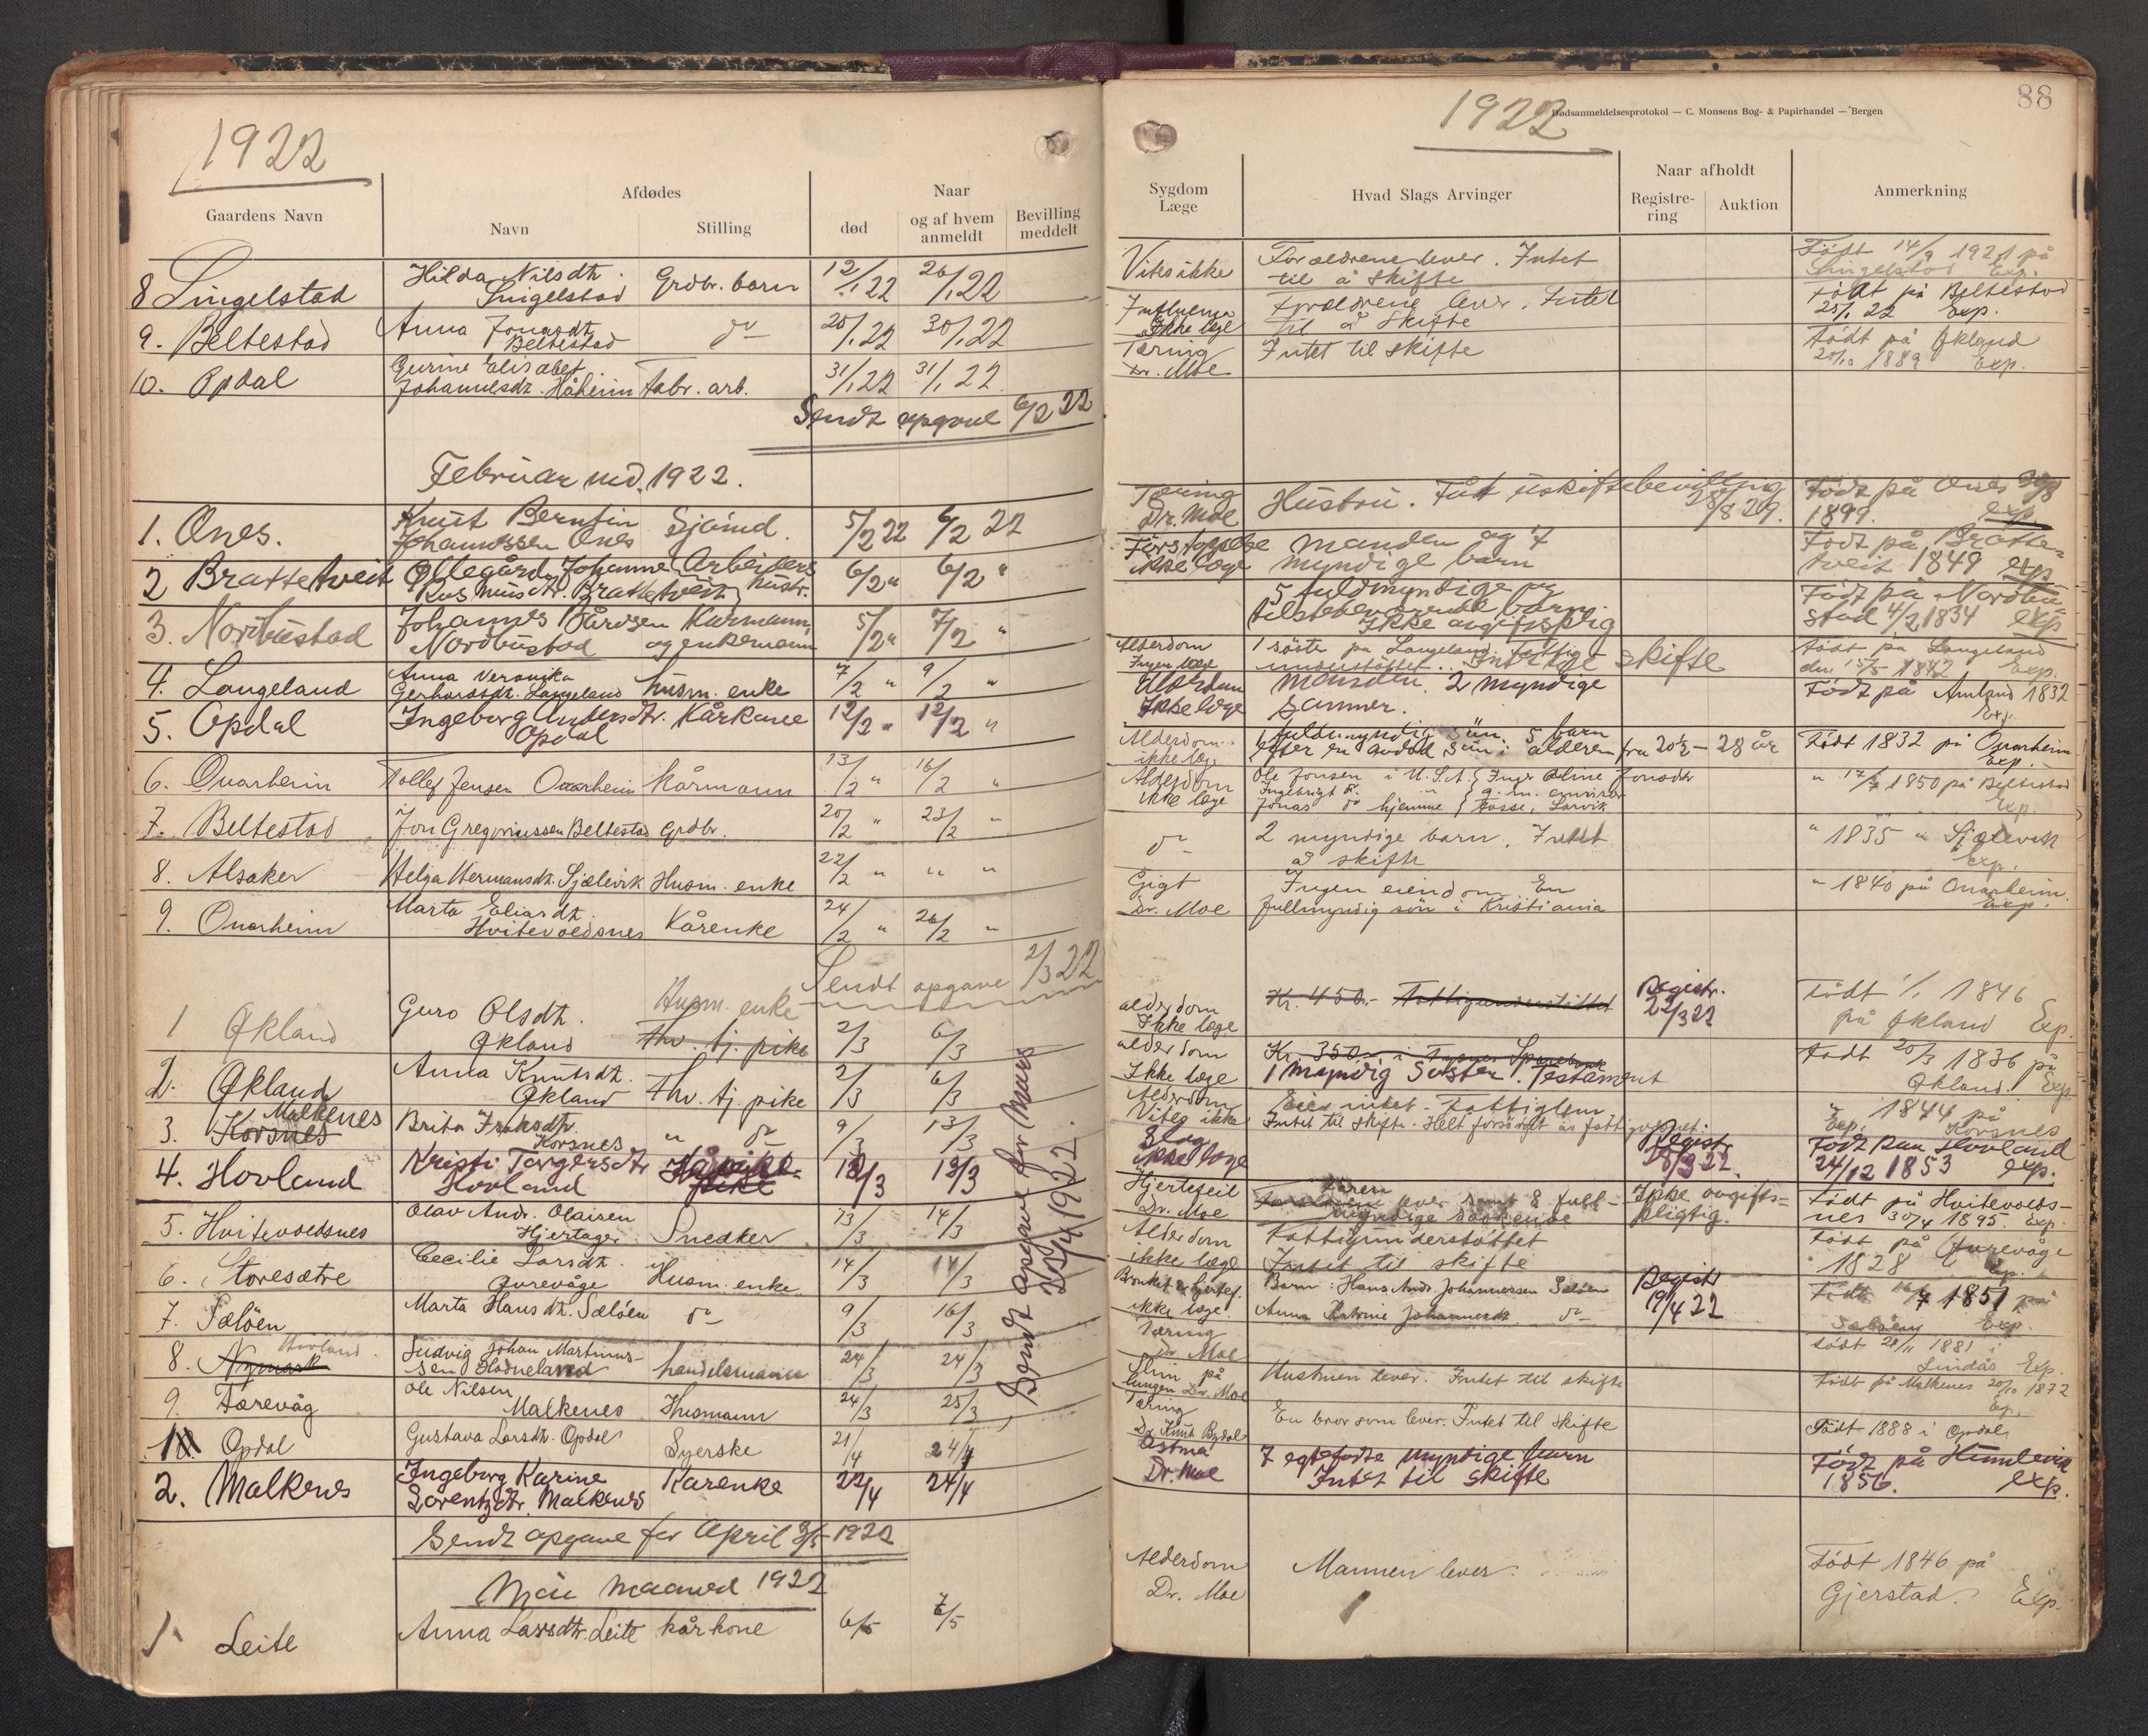 1922
Gaardens Navn
Afdødes
Navn
Stilling
Naar
død
og af hvem anmeldt
Bevilling meddelt
8 Singelstad
Hilda Nilsdtr.
Singelstad
Grdbr. barn
12/1 22
26/1 22
9. Beltestad
Anna Jonasdtr.
Beltestad
do
25/1 22
30/1 22
10. Opdal
Gurine Elisabet
Johannesdtr. Håheim
fabr. arb.
31/1 22
31/1 22
Sendt opgave 6/2 22
Februar md. 1922.
1. Ones.
Knut Berntin
Johannessen Ones
Sjömd.
5/2 22
6/2 22
2 Brattetveit
Ollegård Johanne
Rasmusdtr. Brattetveit
Arbeiders hustr.
6/2 "
6/2 "
3. Nordbustad
Johannes Bårdsen
Nordbustad
Kårmann
og enkemann
5/2 "
7/2 "
4. Langeland
Anna Veronika
Gerhardsdt. Langeland
husm. enke
7/2 "
9/2 "
5. Opdal
Ingeborg Andersdtr.
Opdal
Kårkone
12/2 "
12/2 "
6. Onarheim
Tollef Jensen Onarheim
Kårmann
13/2 "
16/2 "
7. Beltestad
Jon Gregoriussen Beltestad
Grdbr.
20/2 "
23/2 "
8. Alsaker
Helga Hermansdt. Sjælevik
Husm. enke
22/2 "
" "
9. Onarheim
Marta Eliasdtr.
Hvitevoldsnes
Kårenke
24/2 "
26/2 "
Sendt opgave 2/3 22
1 Økland
Guro Olsdtr.
Økland
Husm. enke
Fhv. tj. pike
2/3
6/3
2. Økland
Anna Knutsdtr.
Økland
Fhv. tj. pike
2/3
6/3
Malkenes
3. Korsnes
Brita Iraksdtr.
Korsnes
" do
9/3
13/3
4. Hovland
Kristi Torgersdtr
Hovland
pike
12/3
13/3
5. Hvitevoldsnes
Olav Andr. Olaisen
Hjertager
Snedker
13/3
14/3
6. Storesætre
Cecilie Larsdtr.
Gurevåge
Husm. enke
14/3
14/3
7. Sæløen
Marta Hansdtr. Sæløen
do
9/3
16/3
Hovland
8. Nymark
Ludvig Johan Martinus-
sen Hodneland
handelsmann
24/3
24/3
9. Færevåg
Ole Nilsen
Malkenes
Husmann
24/3
25/3
Sendt opgave for Mars 25/4 1922.
1. Opdal
Gustava Larsdtr. Opdal
Syerske
21/4
24/4
2. Malkenes
Ingeborg Karine
Lorentzdtr. Malkenes
Kårenke
22/4
24/4
Sendt opgave for April 3/5 1922
Mai maaned 1922
1. Leite
Anna Larsdtr. Leite
kårkone
6/5
7/5
88
Dødsanmeldelsesprotokol — C. Monsens Bog- & Papirhandel — Bergen
1922
Sygdom
Læge
Hvad Slags Arvinger
Naar afholdt
Registre-
ring
Auktion
Anmerkning
Vites ikke
Forældrene lever. Intet
til å skifte
Født 14/9 1921 på
Singelstad Exp.
Influensa
Ikke læge
Forældrene lever. Intet
til å skifte
Født på Beltestad
25/1 22 Exp.
Tæring
Dr. Moe
Intet til skifte
Født på Økland
20/10 1889 Exp.
Tæring
Dr. Moe
Hustru. Fåt uskiftebevilling
28/8 29.
Født på Ones
1899. exp.
Forstoppelse
ikke læge
Manden og 7
myndige barn
Født på Bratte-
tveit 1849 exp.
5 fuldmyndige og
tilstedeværende barn.
Ikke avgiftspligtig
Født på Nordbu-
stad 4/2 1834 exp
Alderdom
Ingen læge
1 söster på Langeland. Fattig-
understöttet. Intet til skifte
Født på Langeland
den 15/5 1842 Exp.
Alderdom
Ikke læge
Manden. 2 myndige
sønner.
Født på Amland 1832
Exp.
Alderdom
ikke læge
1 fuldmyndig sön. 5 barn
efter en avdød sön i alderen fra 20½ – 28 år
Født 1832 på Onarheim
Exp.
Alderdom
ikke læge
Ole Jonsen i U.S.A.
Ingebrigt do "
Jonas do hjemme
Inger Oline Jonsdtr
Fosse, Larvik
" 17/7 1850 på Beltestad
Exp.
do
2 myndige barn. Intet
å skifte
" 1835 " Sjælevik
Exp.
Gigt
Dr. Moe
Ingen eiendom. En
fullmyndig sön i Kristiania
" 1840 på Onarheim.
Exp.
alderdom
Ikke læge
Kr. 450.- Fattigunderstöttet
Registr.
22/3 22
Født 1/1 1846
på Økland Exp.
alderdom
Ikke læge
Kr. 350 i Tysnes Sparebank
1 myndig Søster. Testament
Født 20/3 1836 på
Økland. Exp
Alderdom
Vites ikke
Eier intet - fattiglem
Intet til skifte. Helt forsörget av fattigvesenet.
" 1844 på
Exp. Korsnes
Slag
ikke læge
Registr
28/3 22.
Født paa Hovland
24/12 1853 exp.
Hjertefeil
Dr. Moe
lever samt 8 full-
myndige søskende
Ikke avgifts-
pligtig.
Født på Hvitevolds-
nes 30/4 1895. Exp.
Alderdom
ikke læge
Fattigunderstöttet
Intet til skifte
Født på Gurevåge
1828 Exp.
Bronkit & hjertef.
ikke læge.
Barn: Hans Andr. Johannessen Sæløen
Anna Katrine Johannesdt. do
Registr
19/4 22
Født 1851 på
Sæløen Exp.
Tæring
Dr Moe
Født 21/11 1881 i
Lindås Exp.
Slim på
lungen Dr. Moe
Hustruen lever. Intet til skifte
Født på Malkenes 20/10 1872
Exp.
Tæring
Dr. Knut Bydal
En bror som lever. Intet til skifte
Født 1888 i Opdal
Astma
Dr. Moe
7 egtefødte myndige barn
Intet til skifte
Født på Humlevik
1856. exp.
Alderdom
Dr. Moe
Mannen lever
Født 1846 på
Gjerstad. Exp.